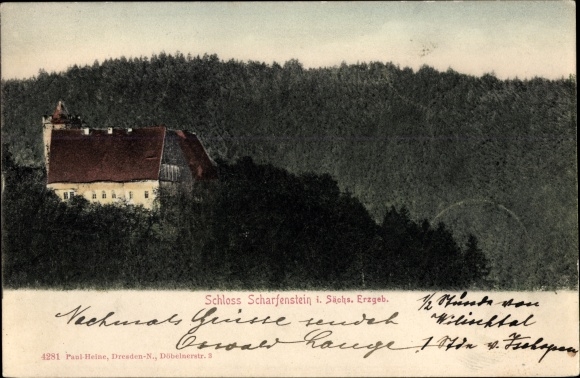 Schloss Scharfenstein i. Sächs. Erzgeb.
Nochmals Grüsse sendet
Oswald Lange
1/2 Stunde von
Wilischtal
1 Std v. Zschopau
4281 Paul Heine, Dresden-N., Döbelnerstr. 3